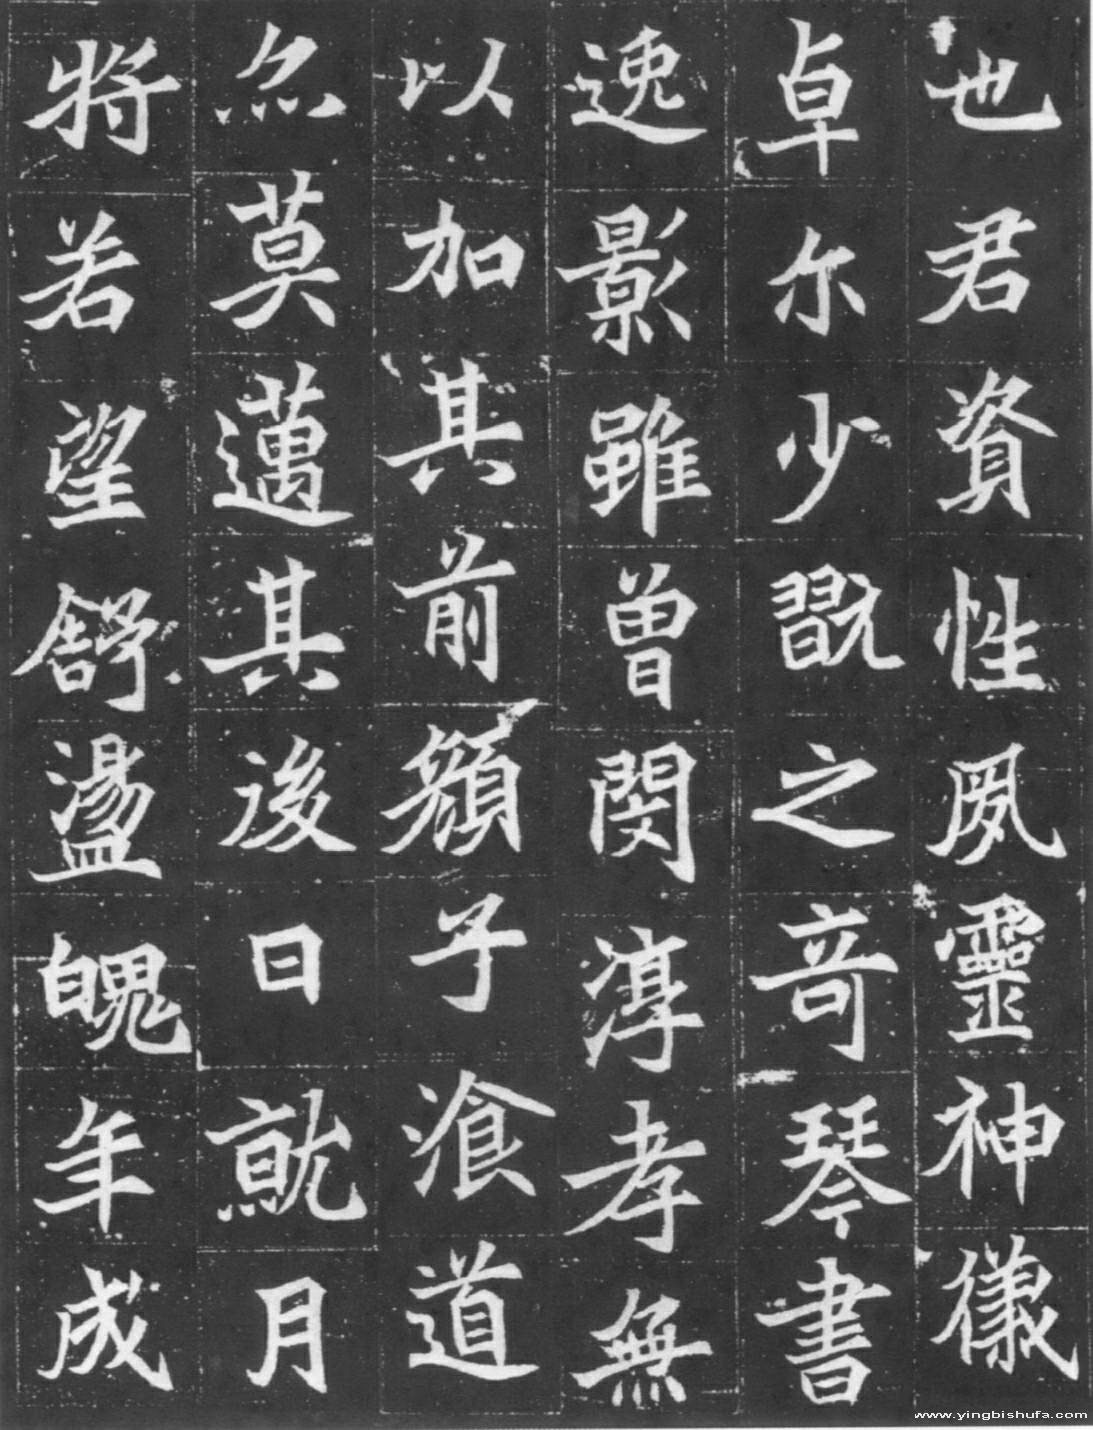 也君資性夙靈神儀
卓尔少翫之奇琴書
逸影雖曾閔淳孝無
以加其前顏子湌道
亦莫邁其後日就月
將若望舒盪魄年成
www.yingbishufa.com